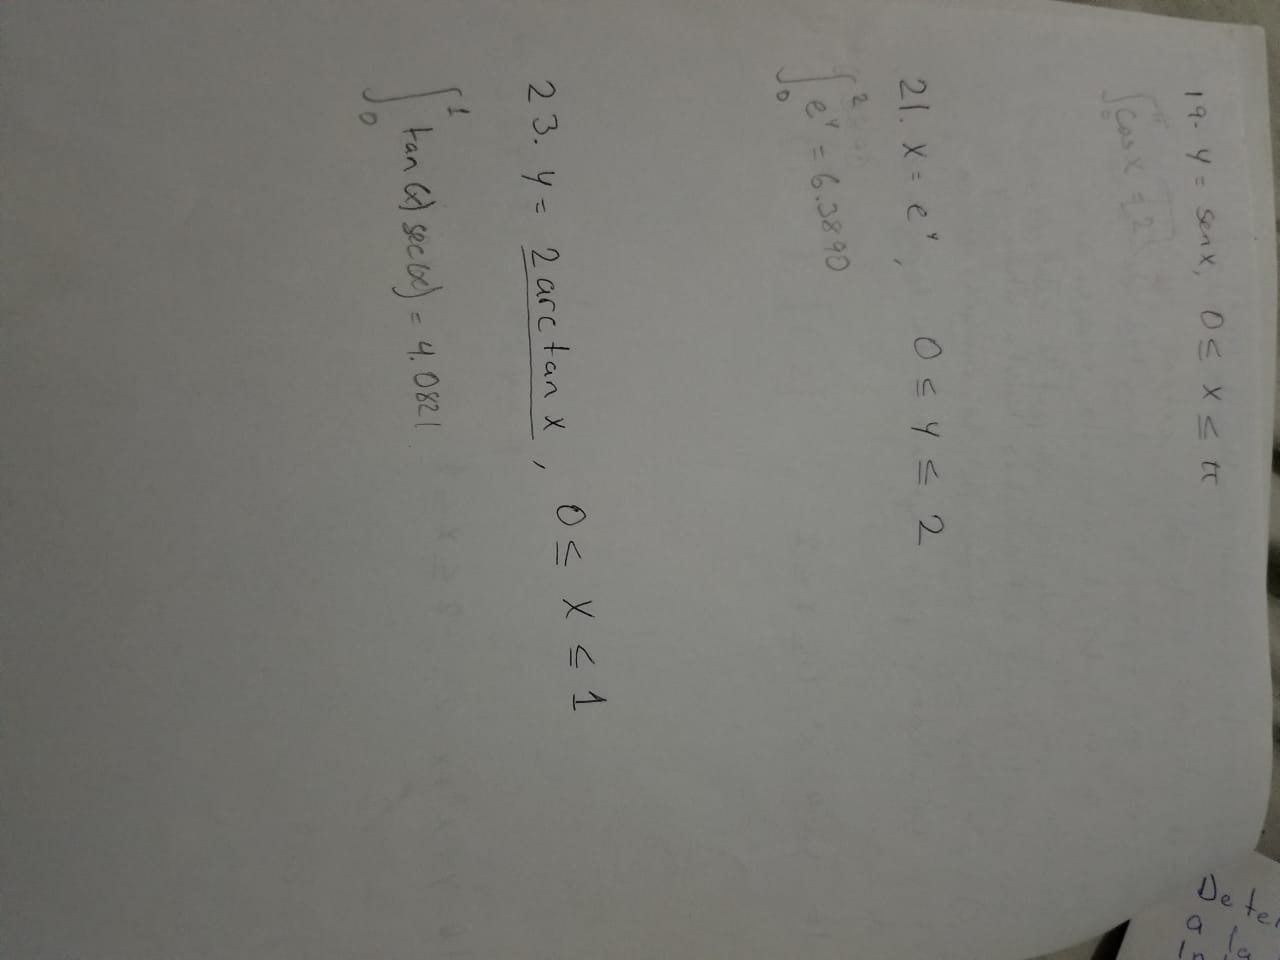 19. y = senx, 0 ≤ x ≤ π
∫₀^π cosx = 2
21. x = e^y, 0 ≤ y ≤ 2
∫₀² e^y = 6.3890
23. y = 2 arctan x, 0 ≤ x ≤ 1
∫₀¹ tan(x) sec(x) = 4.0821
De
a la